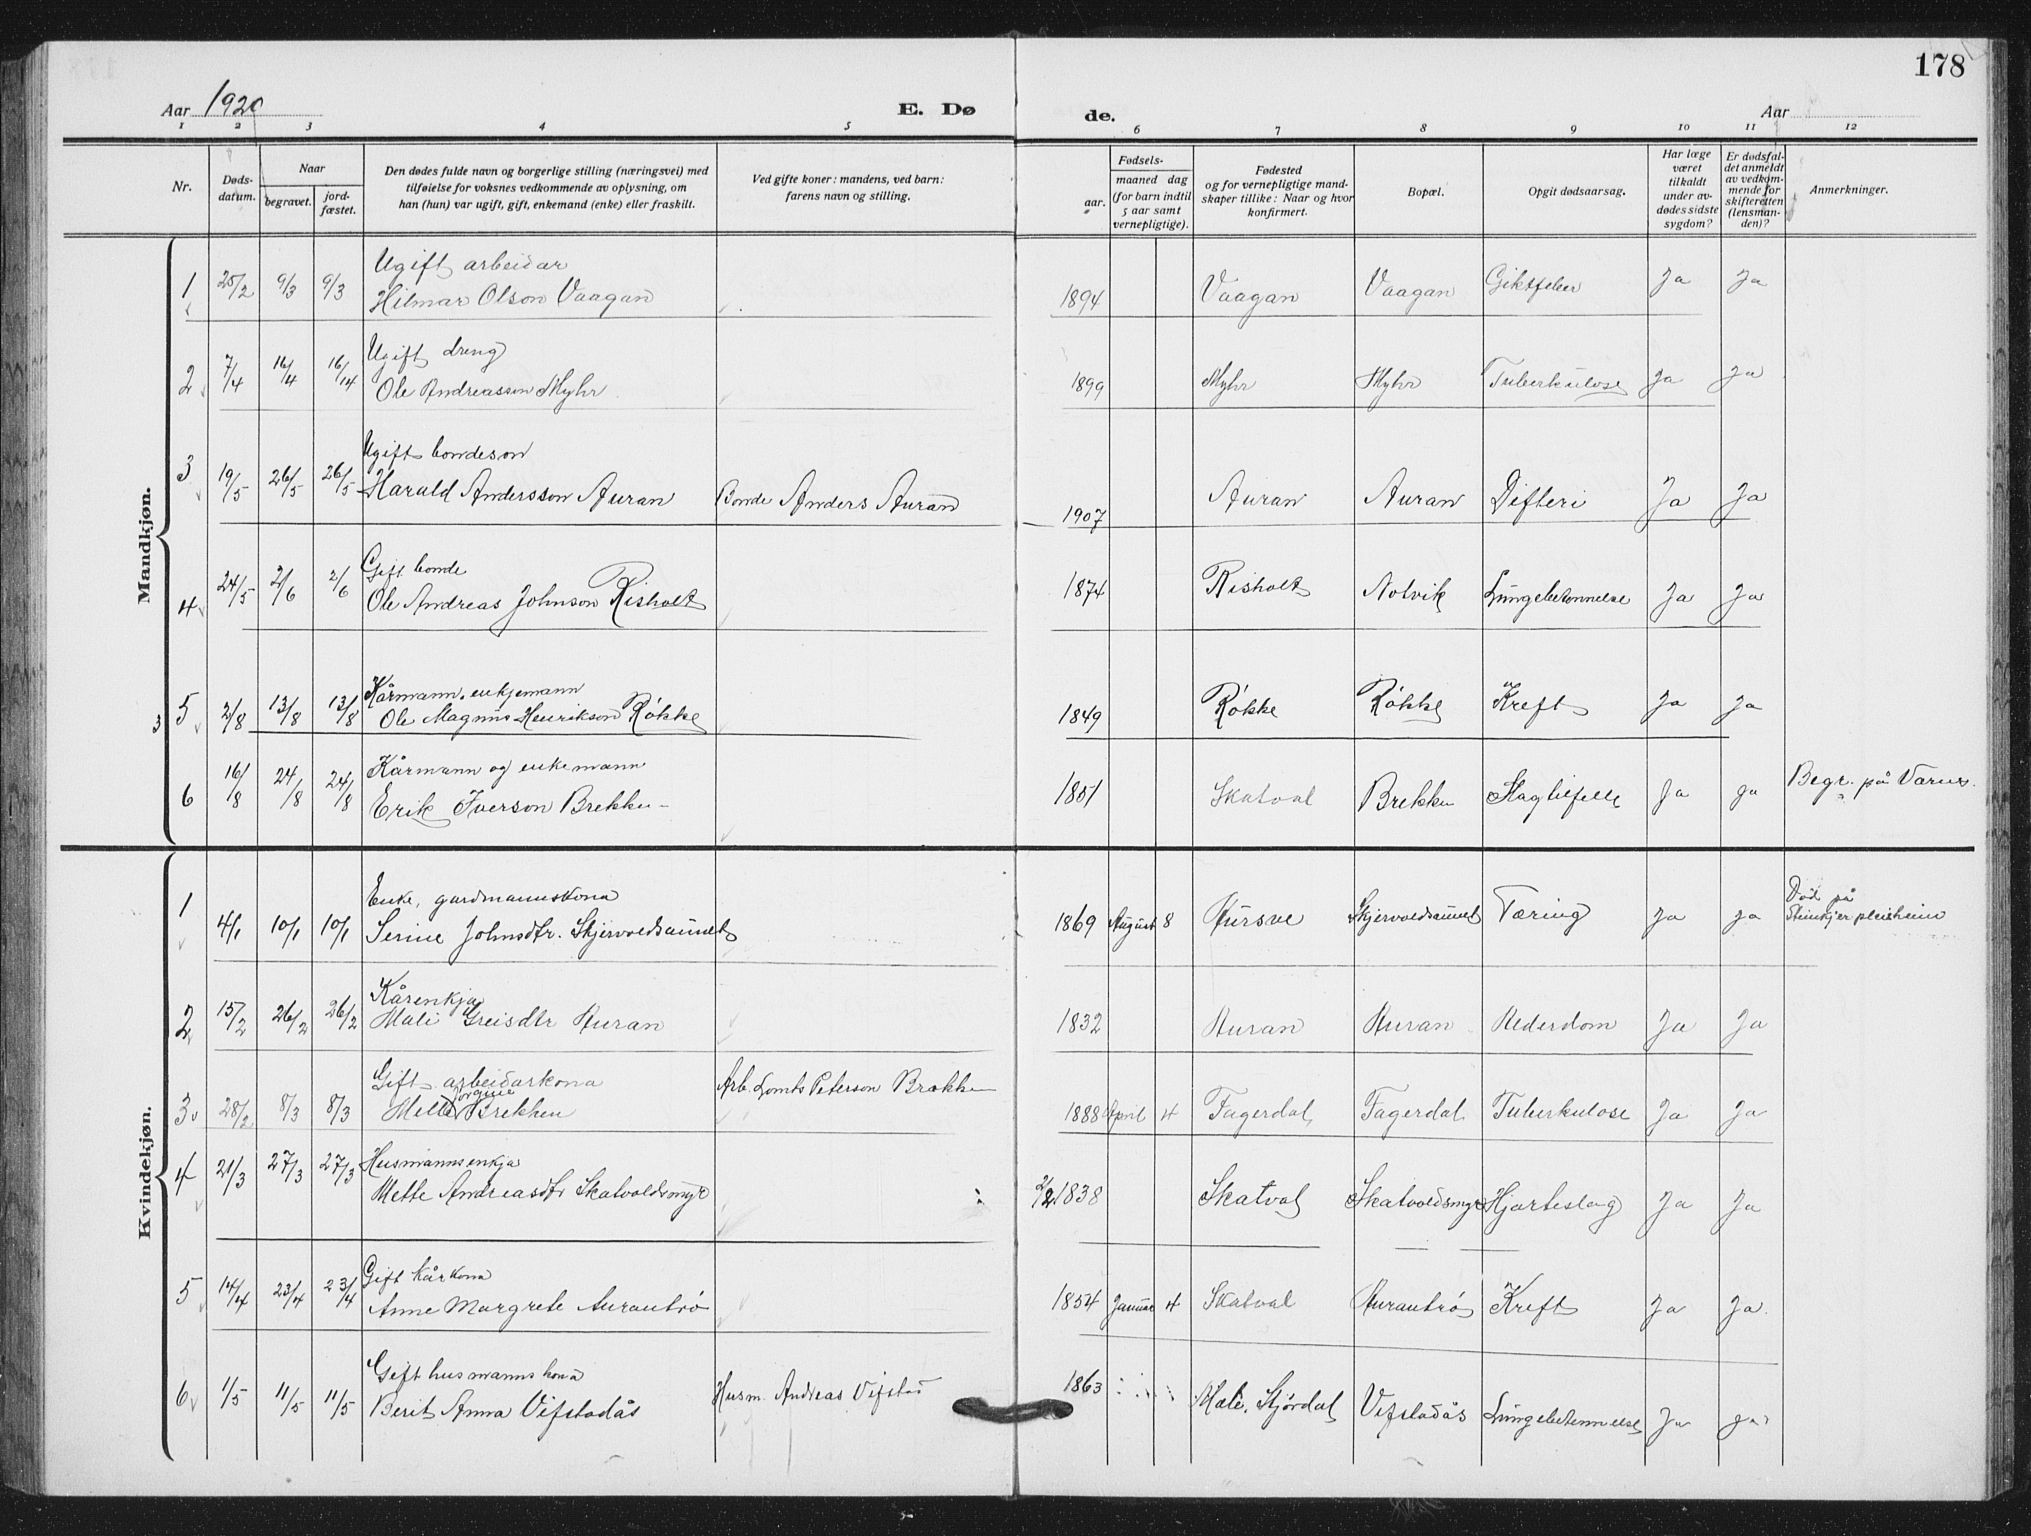 178
Aar 1920 E. Dø de. Aar
1 2 3 4 5 6 7 8 9 10 11 12
Nr.
Døds-
datum.
Naar
begravet.
jord-
fæstet.
Den dødes fulde navn og borgerlige stilling (næringsvei) med
tilføielse for voksnes vedkommende av oplysning, om
han (hun) var ugift, gift, enkemand (enke) eller fraskilt.
Ved gifte koner: mandens, ved barn:
farens navn og stilling.
Fødsels-
aar.
maaned dag
(for barn indtil
5 aar samt
vernepligtige).
Fødested
og for vernepligtige mand-
skaper tillike: Naar og hvor
konfirmert.
Bopæl.
Opgit dødsaarsag.
Har læge
været
tilkaldt
under av-
dødes sidste
sygdom?
Er dødsfal-
det anmeldt
av vedkom-
mende for
skifteretten
(lensman-
den)?
Anmerkninger.
Mandkjøn.
Ugift arbeidar
1 25/2 9/3 9/3 Hilmar Olson Vaagan 1894 Vaagan Vaagan Giktfeber Ja Ja
Ugift dreng
2 7/4 16/4 16/14 Ole Andreasson Myhr 1899 Myhr Myhr Tuberkulose Ja Ja
Ugift bondeson
3 19/5 26/5 26/5 Harald Andersson Auran Bonde Anders Auran 1907 Auran Auran Difteri Ja Ja
Gift bonde
4 24/5 2/6 2/6 Ole Andreas Johnson Risholt 1874 Risholt Notvik Lungebetennelse Ja Ja
Kårmann, enkjemann
3 5 2/8 13/8 13/8 Ole Magnus Henrikson Røkke 1849 Røkke Røkke Kreft Ja Ja
Kårmann og enkemann
6 16/8 24/8 24/8 Erik Iverson Brekken 1851 Skatval Brekken Slagtilfelle Ja Ja Begr. på Værnes.
Kvindekjøn.
Enke, gardmannskona
1 4/1 10/1 10/1 Serine Johnsdtr. Skjervoldsaunet 1869 August 8 Aursve Skjervoldsaunet Tæring Ja Ja Død på
Steinkjer pleieheim
Kårenkja
2 15/2 26/2 26/2 Mali Greisdtr Auran 1832 Auran Auran Alderdom Ja Ja
Gift arbeidarkona
3 28/2 8/3 8/3 Mette Jorgine Brekken Arb. Lornts Peterson Brækken 1888 April 4 Fagerdal Fagerdal Tuberkulose Ja Ja
Husmannsenkja
4 21/3 27/3 27/3 Mette Andreasdtr Skatvoldsmyr 2/2 1838 Skatval Skatvoldsmyr Hjarteslag Ja Ja
Gift kårkona
5 14/4 23/4 23/4 Anne Margrete Aurantrø 1854 Januar 4 Skatval Aurantrø Kreft Ja Ja.
Gift husmannskona
6 1/5 11/5 11/5 Berit Anna Vifstadås Husm. Andreas Vifstad 1863 Stjørdal Vifstadås Lungebetennelse Ja Ja